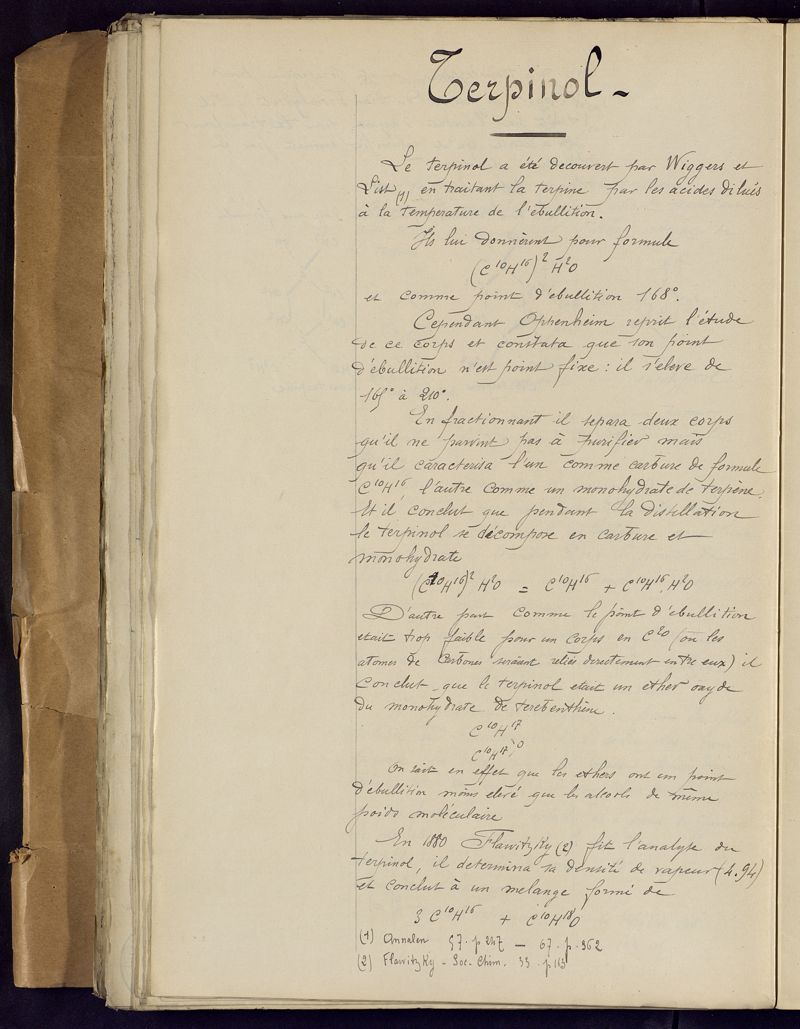 Terpinol -
Le terpinol a été decouvert par Wiggers et
List (1) en traitant la terpine par les acides dilués
à la température de l'ébullition.
Ils lui donnèrent pour formule
(C¹⁰H¹⁶)² H²O
et comme point d'ébullition 168°.
Cependant Oppenheim reprit l'étude
de ce corps et constata que son point
d'ébullition n'est point fixe : il s'eleve de
165° à 210°.
En fractionnant il separa deux corps
qu'il ne parvint pas à purifier mais
qu'il caracterisa l'un comme carbure de formule
C¹⁰H¹⁶, l'autre comme un monohydrate de terpène.
Et il conclut que pendant la distillation
le terpinol se décompose en carbure et
monohydrate
(C¹⁰H¹⁶)² H²O = C¹⁰H¹⁶ + C¹⁰H¹⁶, H²O
D'autre part comme le point d'ebullition
etait trop faible pour un corps en C²⁰ (où les
atomes de Carbones seraient reliés directement entre eux) il
conclut que le terpinol etait un ether oxyde
du monohydrate de terebenthène.
C¹⁰H¹⁷
C¹⁰H¹⁷ O
On sait en effet que les ethers ont un point
d'ébullition moins elevé que les alcools de même
poids moléculaire
En 1880 Flawitzky (2) fit l'analyse du
terpinol, il determina sa densité de vapeur (4.94)
et conclut à un melange formé de
3 C¹⁰H¹⁶ + C¹⁰H¹⁸O
(1) Annalen 57. p 247 — 67. p. 362
(2) Flawitzky - Soc. Chim. 33. p 113